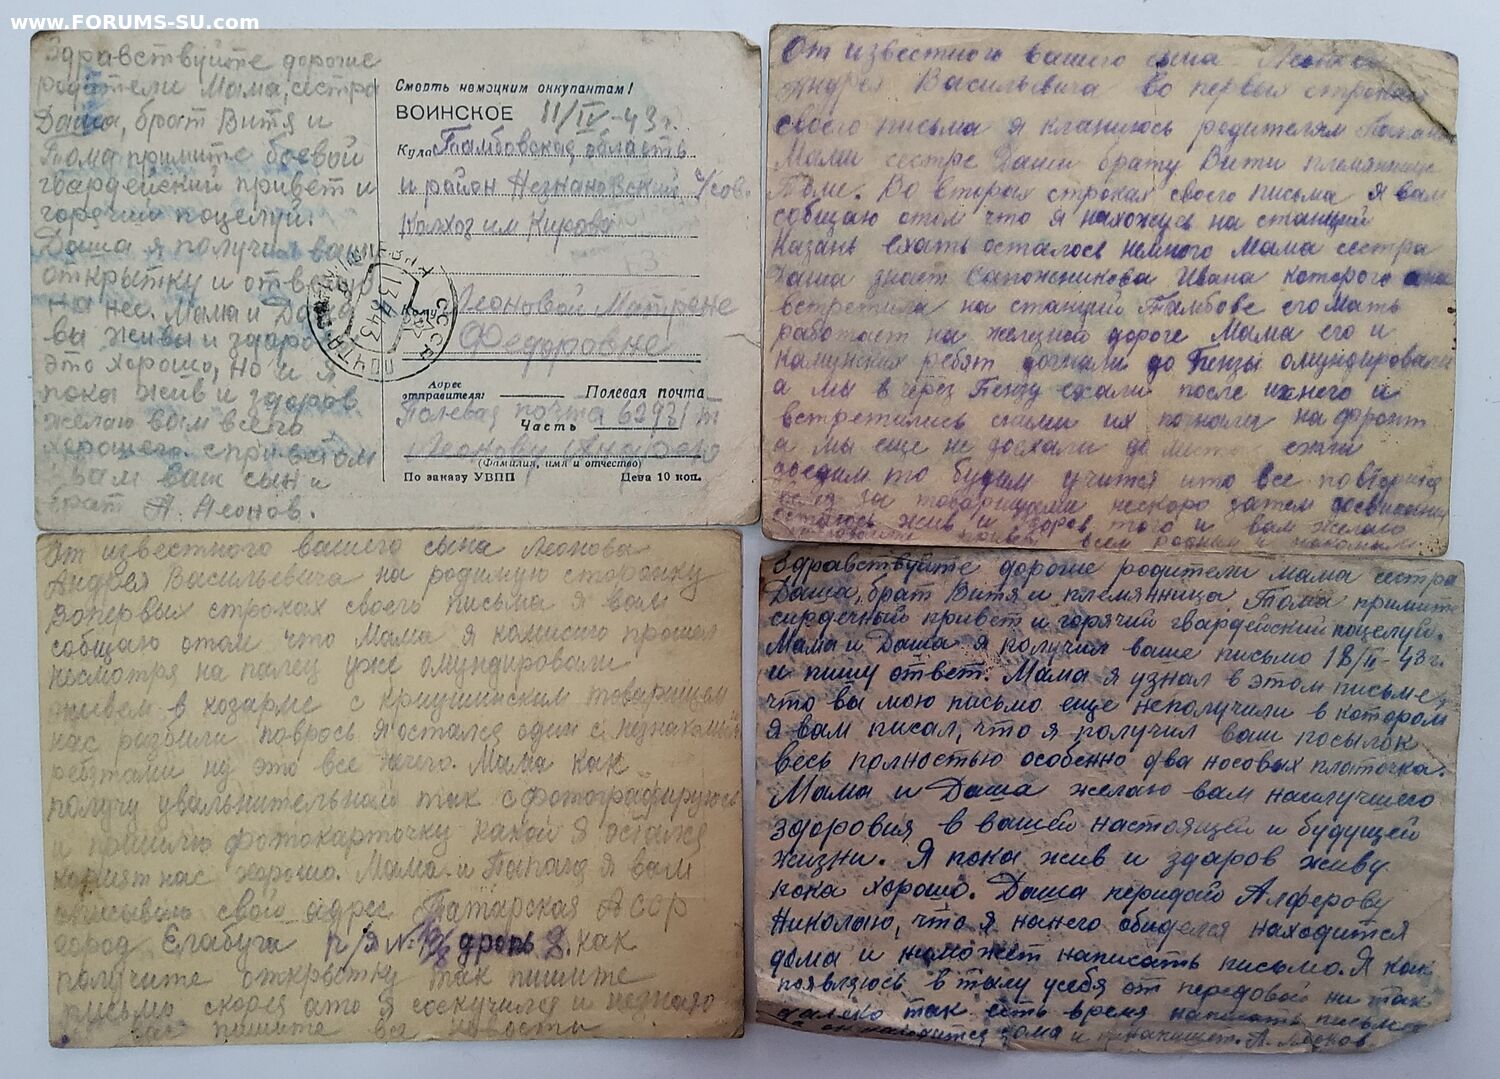 www.FORUMS-SU.com
Здравствуйте дорогие
родители Мама, сестра
Даша, брат Витя и
Тома примите боевой
гвардейский привет и
горячий поцелуй.
Даша я получил ваше
открытку и отвечаю
на нес. Мама и Даша
вы живы и здоровы
это хорошо, но и я
пока жив и здоров
желаю вам всего
хорошего с приветом
к вам ваш сын и
брат А. Леонов.
Смерть немецким оккупантам!
ВОИНСКОЕ 11/IV-43г.
Куда Тамбовская область
и район Незнановский с/сов.
Колхоз им Кирова
Леоновой Матрене
Федоровне
ПОЧТА СССР
13 4 43
Адрес отправителя: Полевая почта
Полевая почта 6293/т
Часть
Леонову
(Фамилия, имя и отчество)
По заказу УВПП Цена 10 коп.
От известного вашего сына
Андрея Васильевича во первых строках
своего письма я кланиюсь родителям Папаши
Мами сестре Даши брату Вити племяннице
Томе. Во вторых строках своего письма я вам
собщаю отом что я нахожусь на станций
Казань ехать осталось немного Мама сестра
Даша знает Сапожникова Ивана которого она
встретила на станций Тамбове его мать
работает на желизной дороге Мама его и
ребят догнали до Пензы омундировали
а мы в через Пензу ехали после ихнего и
встретились сними их погнали на фронт
а мы еще не доехали до места если
доедим то будим учится
за товарищеми нескоро затем досвидания
остаюсь жив и здоров того и вам желаю
привет всем родным и
От известного вашего сына Леонова
Андрея Васильевича на родимую сторонку
Вопервых строках своего письма я вам
собщаю отом что Мама я комисию прошел
несмотря на палец уже омундировали
живем в козарме с криушинским товарищем
нас разбили поврось я остался один с незнакомый
ребятами ну это все ничего. Мама как
получу увальнительнай так сфотографируюсь
и пришлю фотокарточку какой я остался
кормят нас хорошо. Мама и Папаша я вам
описываю свой адрес Татарская АССР
город Елабуга п/я № дробь 8. как
получите открытку так пишите
письмо скорея ато я соскучился и незнаю
пишите все новости
Здравствуйте дорогие родители мама сестра
Даша, брат Витя и племянница Тома примите
сирдечный привет и горячий гвардейский поцелуй.
Мама и Даша я получил ваше письмо 18/II-43г.
и пишу ответ. Мама я узнал в этом письме,
что вы мою письмо еще неполучили в котором
я вам писал, что я получил ваш посылок
весь полностью особенно два носовых платочка.
Мама и Даша желаю вам наилучшего
здоровия в вашей настоящей и будущей
жизни. Я пока жив и здаров живу
пока хорошо. Даша перидай Алферову
Николаю, что я нанего обиделся находится
дома и неможет написать письмо. Я как
появляюсь в тылу усебя от передовой ни так
далеко так есть время написать письмо
а он находится дома и непишет. А. Леонов.